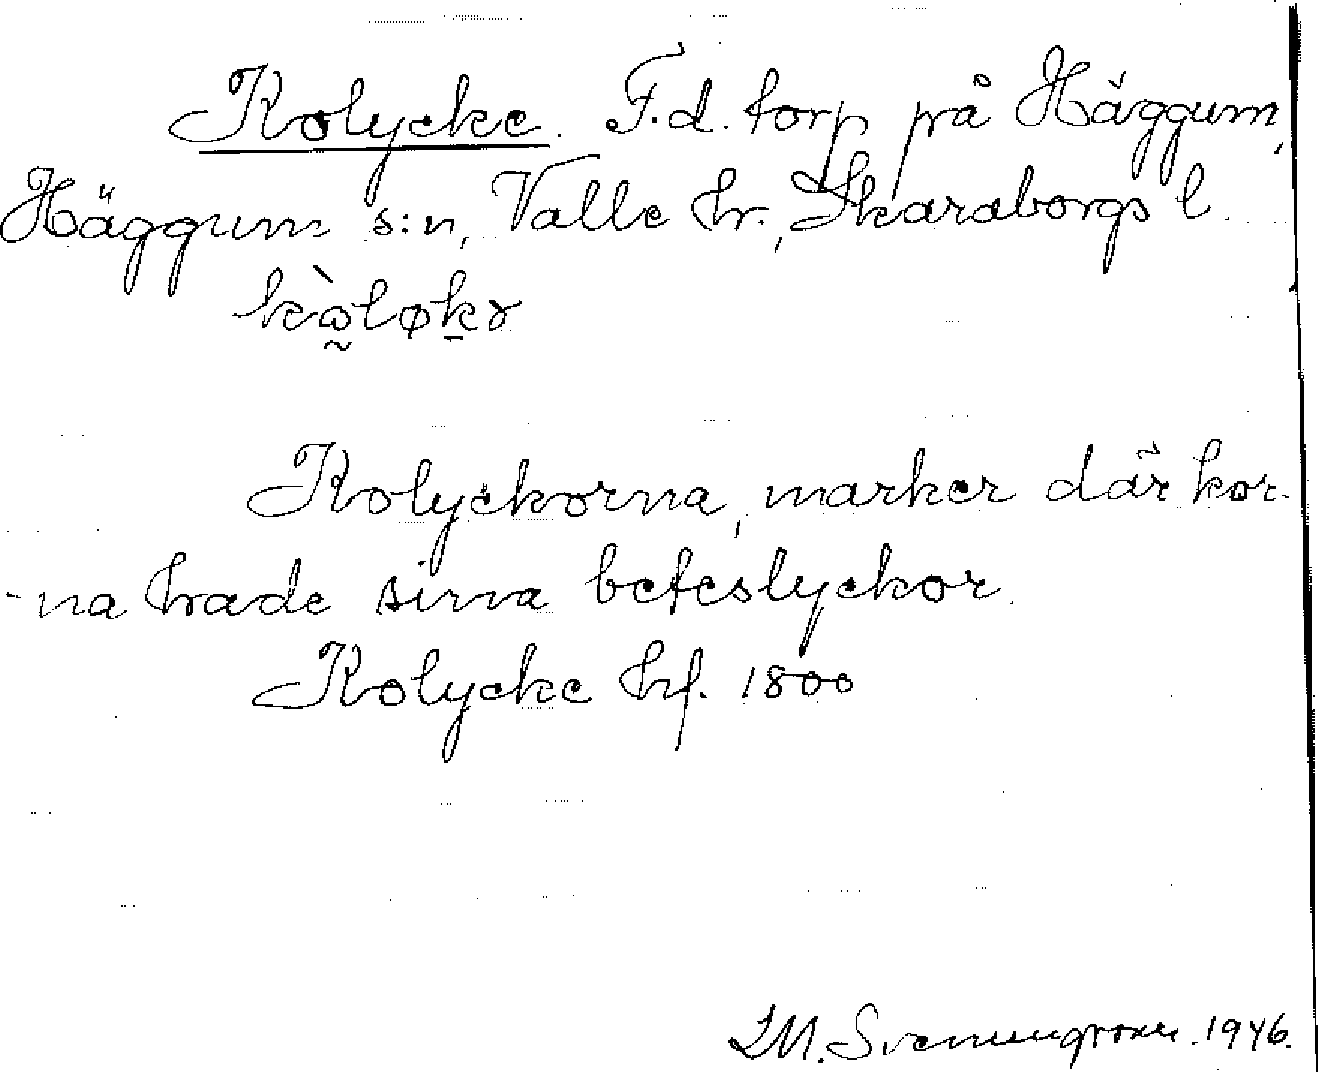 Kolycke. F.d. torp på Häggum,
Häggum s:n, Valle hr., Skaraborgs l.
Kolyckorna, marker där kor-
-na hade sinna beteslyckor.
Kolycke hf. 1800
1946.